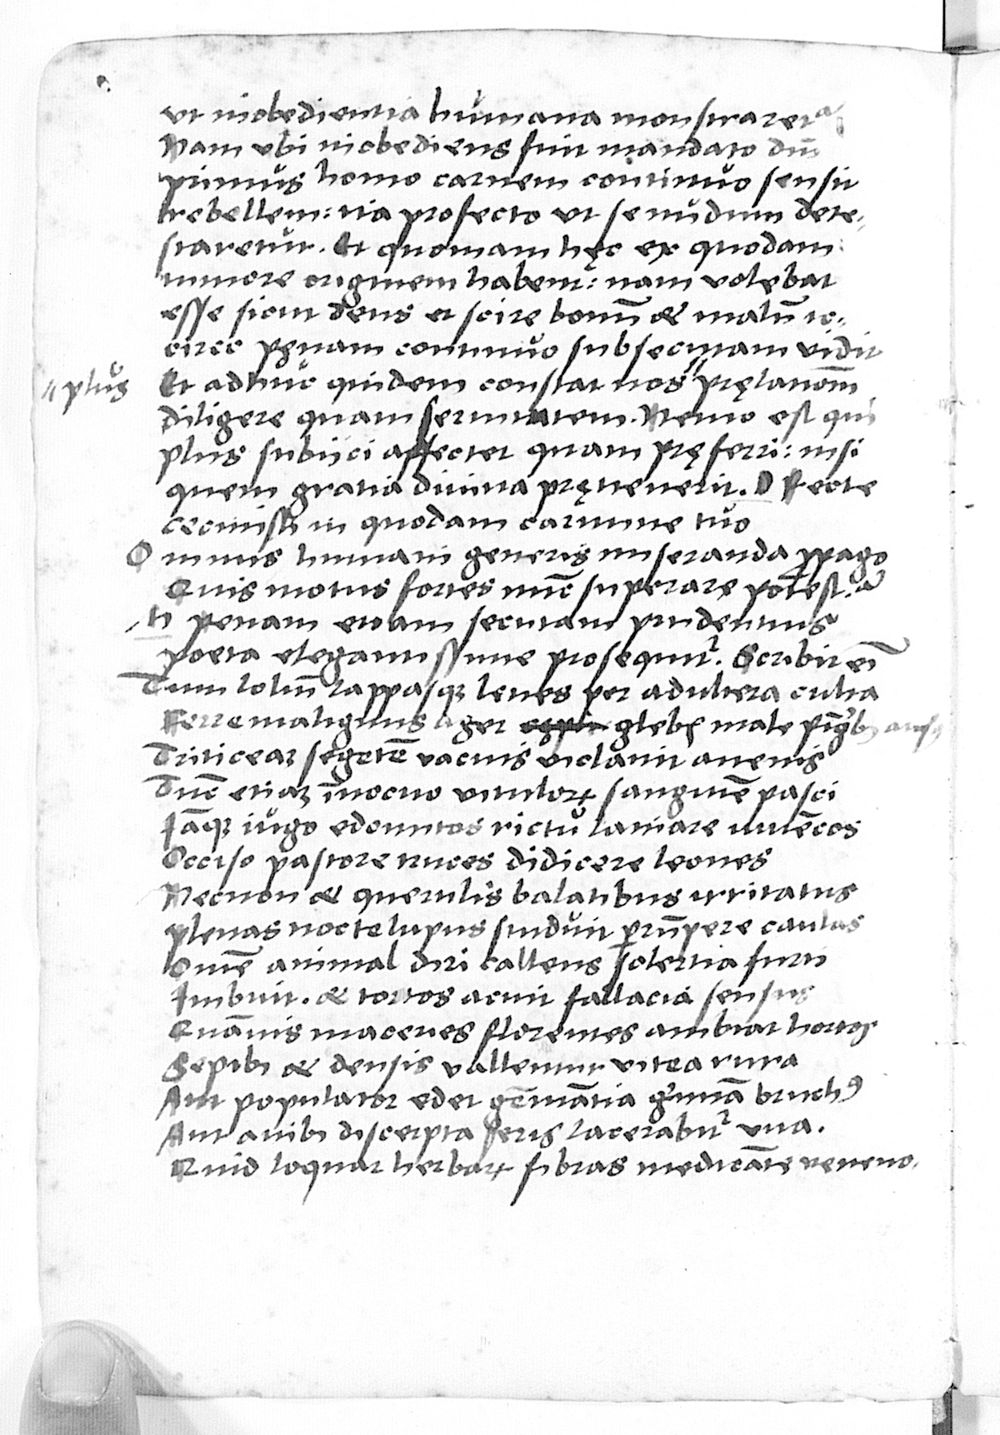 ut inobedientia humana monstraret͛
Nam ubi inobediens fuit mandato dn̄i
primus homo carnem continuo sensit
rebellem: ita profecto ut se nudum dete-
staretur. Et quoniam hęc ex quodam
tumore originem habent: nam volebat
esse sicut deus et scire bonū & malū ic-
circo pęnam continuo subsecutam vidit
Et adhuc quidem constat nos " pręlationē
" plus
diligere quam servitutem. Nemo est qui
plus subijci affectet quam pręferri: nisi
quem gratia divina pręvenerit. D Recte
cecinisti in quodam carmine tuo
O nimis humani generis miseranda ꝓpago
Quis motus fortes nūc superare potest.
H penam etiam secutam prudentius
poeta elegantissime prosequit͛. Scribit eī
Tum loliū lappasqꝫ leves per adultera culta
Ferre malignus ager glebis male pīguibꝰ ausꝰ
Triticeaꝫ segetē vacuis violavit avenis
Tūc etiaꝫ īnocuo vituloꝝ sanguinē pasci
Iāqꝫ iugo edomitos rictu laniare iuvēcos
Occiso pastore truces didicere leones
Necnon & querulis balatibus irritatus
plenas nocte lupus studuit prūpere caulas
Omē animal diri callens solertia furti
Imbuit. & tortos acuit fallacia sensus
Quāvis maceries florentes ambiat hortos
Sepibꝰ & densis vallentur vitea rura
Aut populator edet gēmātia g͛mina bruchꝰ
Aut avibꝰ discerpta feris lacerabit͛ uva.
Quid loquar herbaꝝ fibras medicāte veneno.